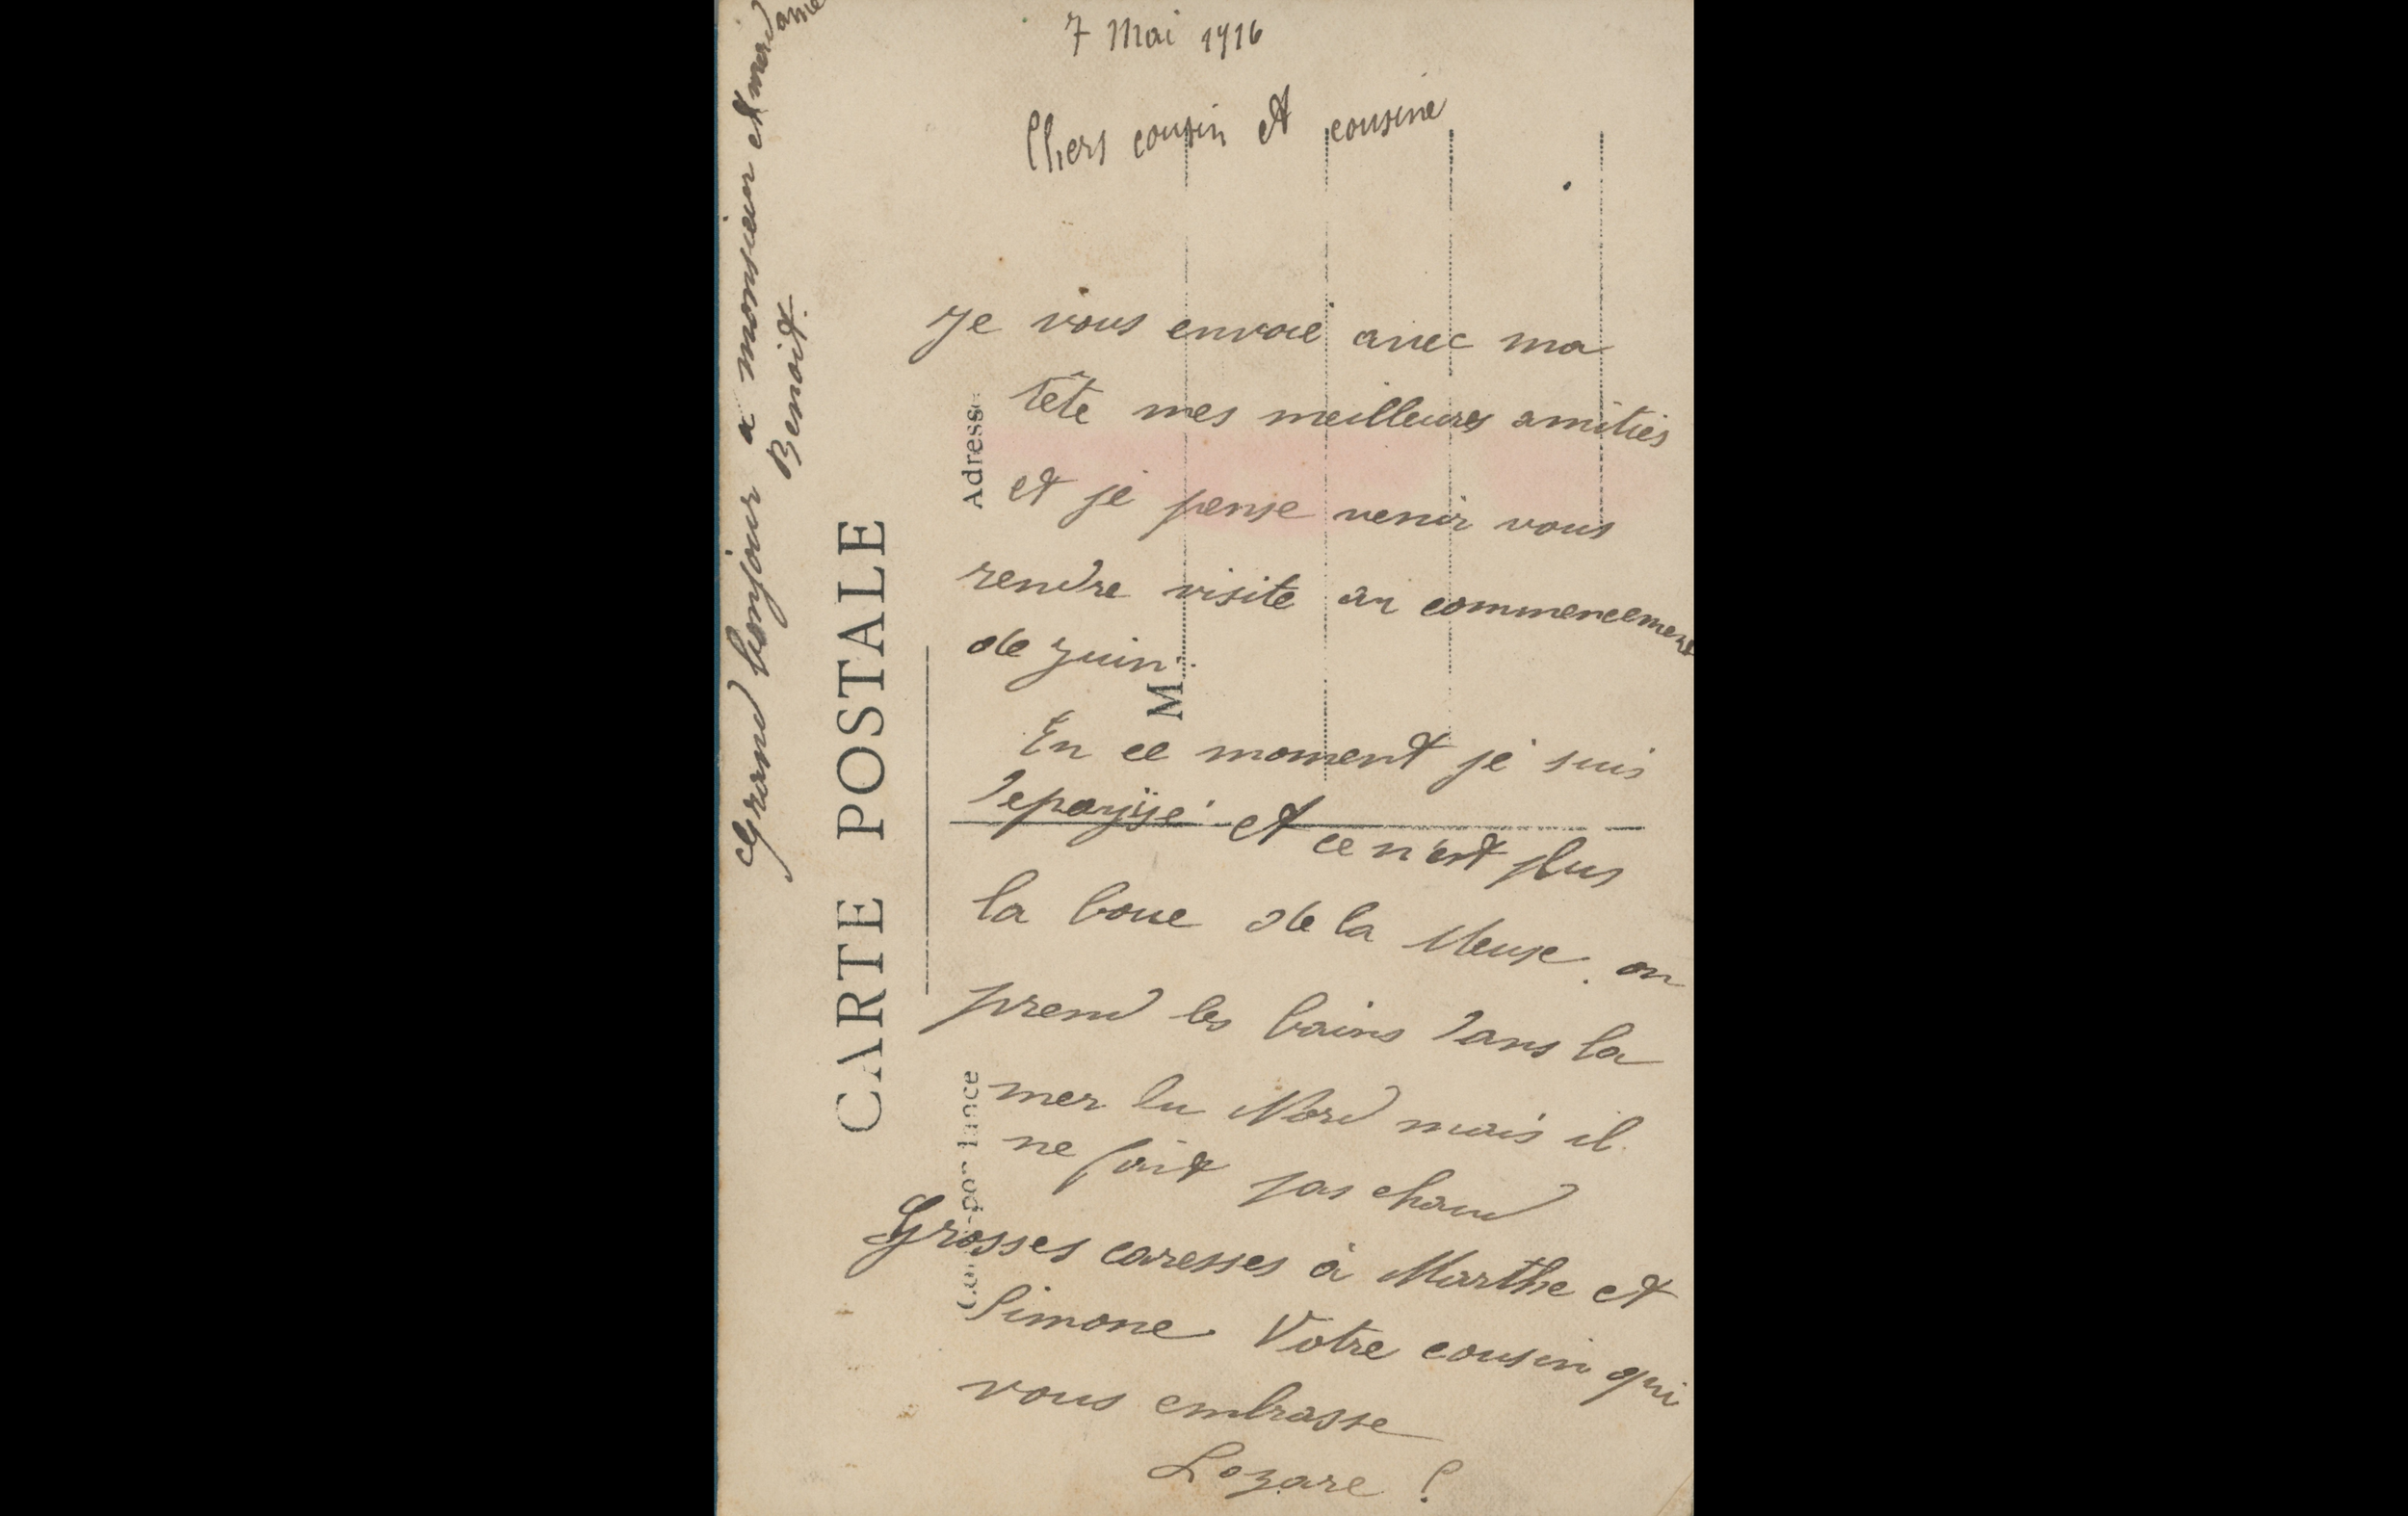 7 Mai 1916
Chers cousin et cousine
Je vous envoie avec ma
tête mes meilleures amitiés
et je pense venir vous
rendre visite au commencement
de Juin.
En ce moment je suis
depaysé et ce n'est plus
la boue de la Meuse. on
prend les bains dans la
mer du Nord mais il
ne fait pas chaud
Grosses caresses à Marthe et
Simone Votre cousin qui
vous embrasse
Lozare
Grand bonjour a monsieur et madame
Benoit.
CARTE POSTALE
Adresse
M
Correspondance